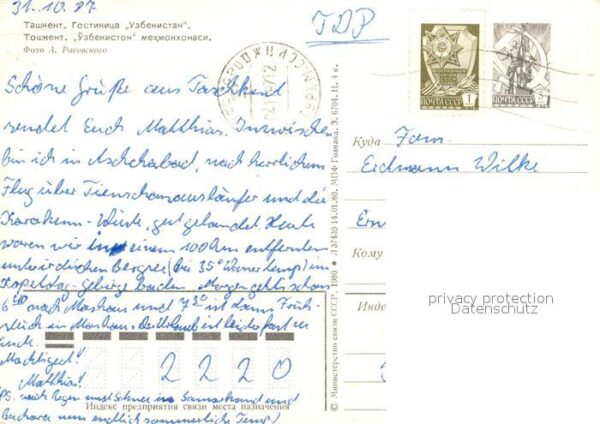 31.10.87
Ташкент. Гостиница „Узбекистан“.
Тошкент. „Ўзбекистон“ меҳмонхонаси.
Фото А. Расовского
ГДР
Schöne Grüße aus Taschkent
sendet Euch Matthias. Inzwischen
bin ich in Aschchabad, nach herrlichem
Flug über Tienschanausläufer und die
Karakum-Wüste, gut gelandet. Heute
waren wir in einem 100 km entfernten
unterirdischen Bergsee (bei 35° Wassertemp) im
Kopetdag-Gebirge baden. Morgen geht's schon
6 30 nach Moskau und 7 50 ist dann Früh-
stück in Moskau. ist leider fast zu
Ende.
Machts gut!
Matthias!
PS. nach Regen und Schnee in Samarkand und
Buchara nun endlich sommerliche Temp!
2 2 2 0
Индекс предприятия связи места назначения
© Министерство связи СССР. 1980 Л 37430 14.01.80. МПФ Гознака. З. 6704. Ц. 4 к.
ПОЧТА СССР 1
ПОЧТА СССР
Куда Fam.
Erdmann Wilke
Кому
Инде
privacy protection
Datenschutz